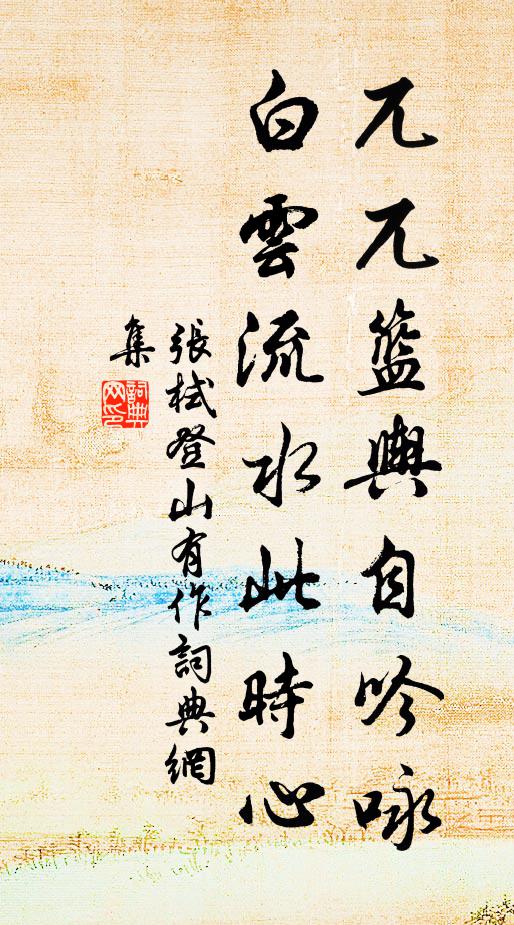 兀兀籃輿自吟咏
白雲流水此時心
張栻登山有作詞典網
集
詞典網印